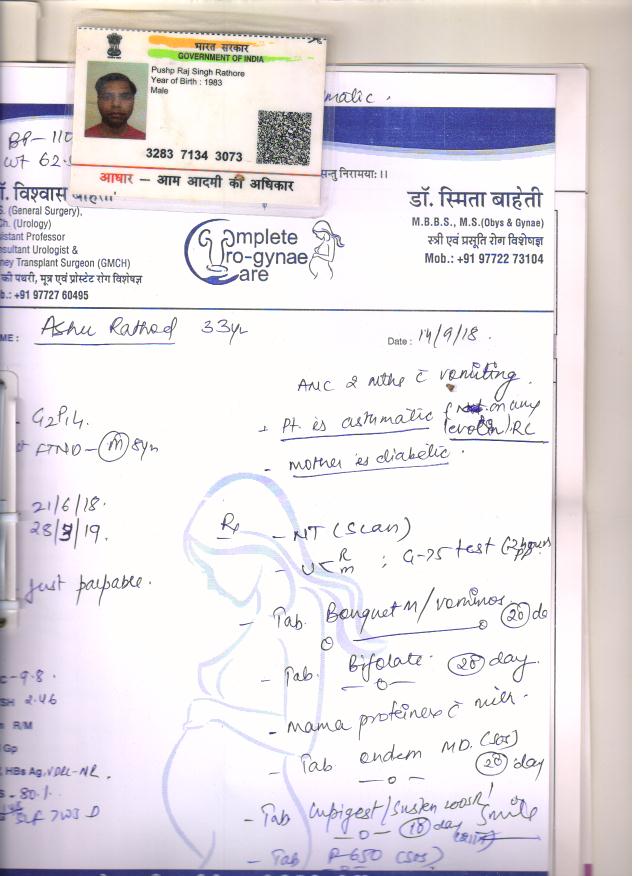 भारत सरकार
GOVERNMENT OF INDIA
Pushp Raj Singh Rathore
Year of Birth : 1983
Male
3283 7134 3073
आधार – आम आदमी की अधिकार
matic.
BP - 110
WT 62.
सन्तु निरामयाः।।
ॉ. विश्वास बाहेती
S. (General Surgery),
Ch. (Urology)
istant Professor
nsultant Urologist &
ney Transplant Surgeon (GMCH)
की पथरी, मूत्र एवं प्रोस्टेट रोग विशेषज्ञ
b.: +91 97727 60495
Complete
Uro-gynae
Care
डॉ. स्मिता बाहेती
M.B.B.S., M.S.(Obys & Gynae)
स्त्री एवं प्रसूति रोग विशेषज्ञ
Mob.: +91 97722 73104
ME : Ashu Rathod 33yr
Date : 14/9/18.
ANC 2 mthe c vomiting.
+ Pt. is asthmatic (Not on any
RC
- mother is diabetic.
G2P1L1
FTND - M 8yr
21/6/18.
28/3/19.
Just palpable.
Rx
- NT (Scan)
- U R/M ; G-75 test (2 hours
- Tab. Bonquet M / vominos 20 da
- Tab. Bifolate. 20 day.
- Mama proteinex c milk.
- Tab ondem MD. (SOS)
20 day
- Tab /Susten 10 day
- Tab P-650 (SOS)
C - 9.8
SH 2.46
s R/M
Gp
HBs Ag, VDRL-NR.
S - 80.1